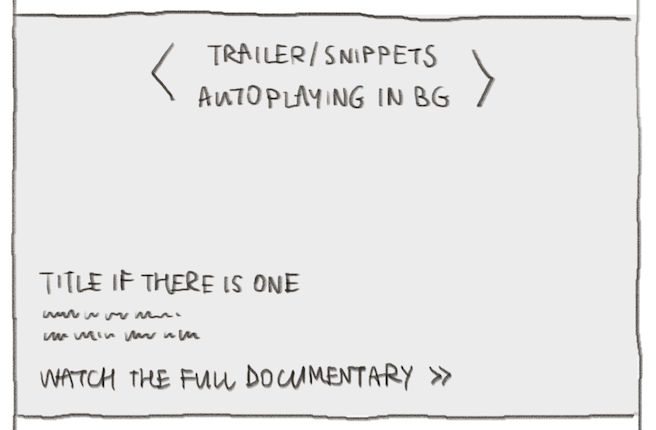 < TRAILER/SNIPPETS
AUTOPLAYING IN BG >
TITLE IF THERE IS ONE
WATCH THE FULL DOCUMENTARY >>